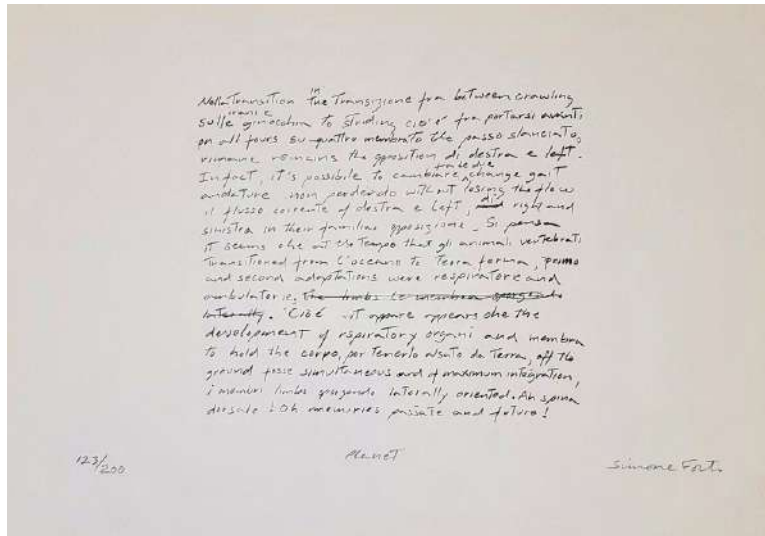 Nella Transition in the Transizione fra between crawling
sulle mani e ginocchia to striding cioè fra portarsi avanti
on all fours su quattro membra to the passo slanciato,
rimane remains the opposition di destra e left.
In fact, it's possibile to cambiare tradurre change gait
andature non perdendo without losing the flow
il flusso corrente of destra e left, di right and
sinistra in their familiar opposizione. Si pensa
it seems che at the tempo that gli animali vertebrati
transitioned from l'oceano to terra ferma, primo
and second adaptations were respiratorie and
ambulatorie. the limbs le membra sporgendo
laterally. Cioè it appare appears che the
development of respiratory organi and membra
to hold the corpo, per tenerlo alzato da terra, off the
ground fosse simultaneous and of maximum integration,
i membri limbs sporgendo laterally oriented. Ah spina
dorsale! Oh memories passate and future!
123/200
Planet
Simone Forti